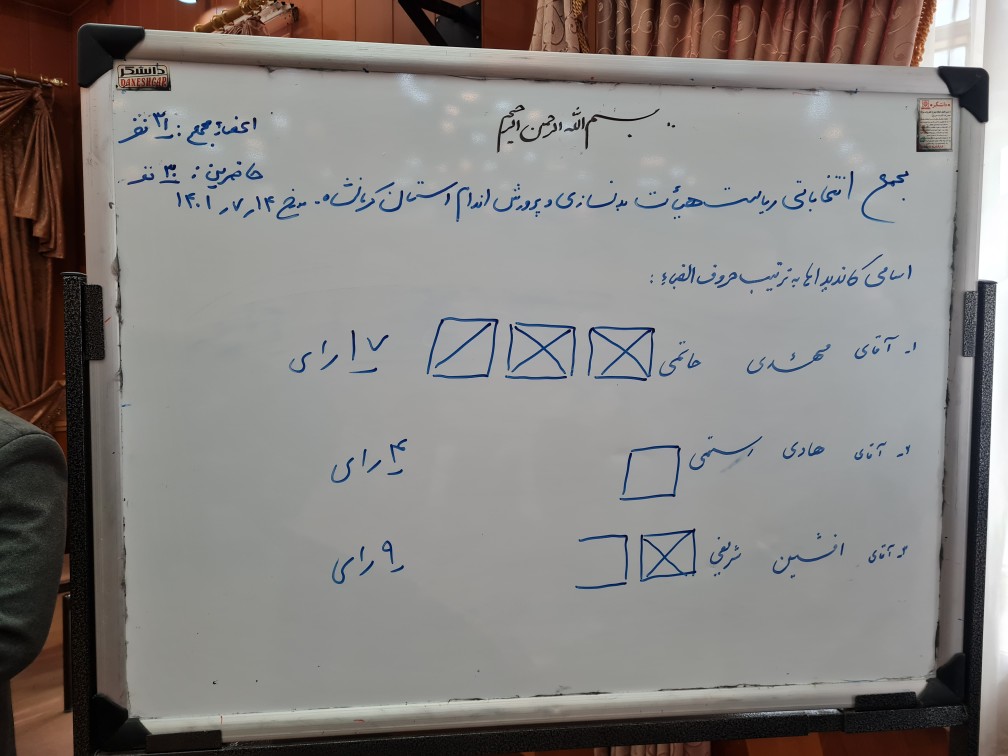 دانشگر
DANESHGAR
بسم الله الرحمن الرحیم
اعضاء مجمع : ۳۱ نفر
حاضرین : ۳۰ نفر
مجمع انتخاباتی ریاست هیأت بدنسازی و پرورش اندام استان کرمانشاه. مورخ ۱۴۰۱/۷/۱۴
اسامی کاندیداها به ترتیب حروف الفباء :
۱- آقای مهدی حاتمی ۱۷ رای
۲- آقای هادی رستمی ۴ رای
۳- آقای افشین شریفی ۹ رای